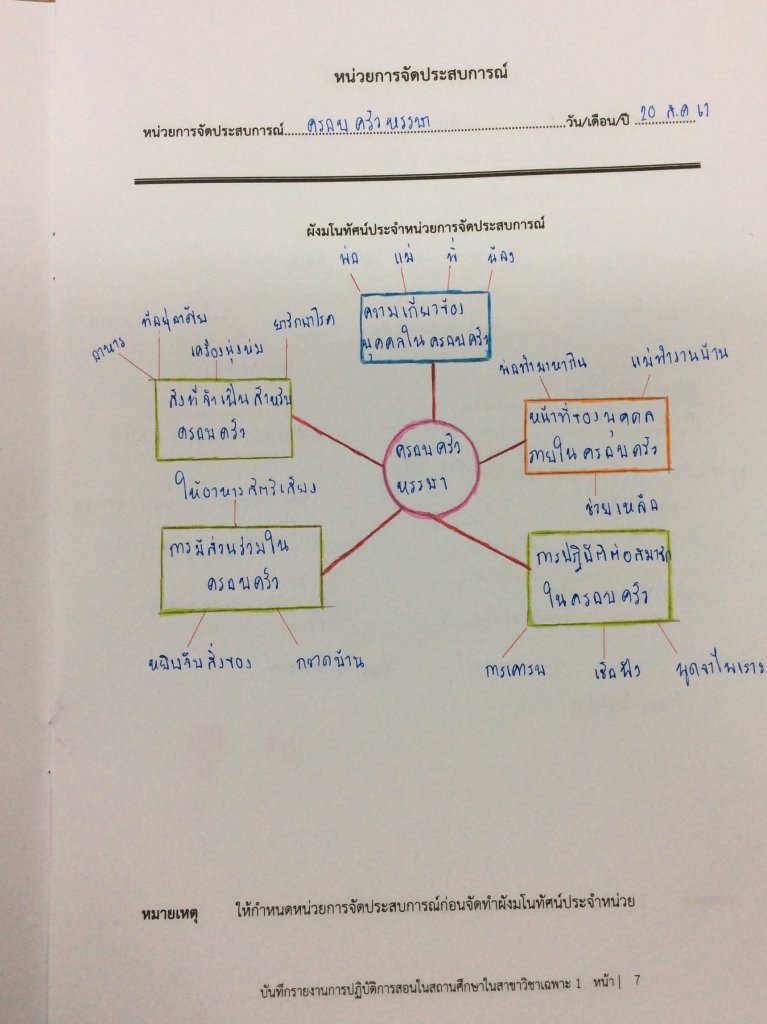 หน่วยการจัดประสบการณ์
หน่วยการจัดประสบการณ์ ครอบครัวหรรษา วัน/เดือน/ปี 20 ส.ค 61
ผังมโนทัศน์ประจำหน่วยการจัดประสบการณ์
พ่อ แม่ พี่ น้อง
ความเกี่ยวข้อง
บุคคลในครอบครัว
อาหาร ที่อยู่อาศัย เครื่องนุ่งห่ม ยารักษาโรค
สิ่งที่จำเป็นสำหรับ
ครอบครัว
พ่อทำมาหากิน แม่ทำงานบ้าน
หน้าที่ของบุคคล
ภายในครอบครัว
ช่วยเหลือ
ครอบครัว
หรรษา
ให้อาหารสัตว์เลี้ยง
การมีส่วนร่วมใน
ครอบครัว
หยิบจับสิ่งของ กวาดบ้าน
การปฏิบัติต่อสมาชิก
ในครอบครัว
การเคารพ เชื่อฟัง พูดจาไพเราะ
หมายเหตุ ให้กำหนดหน่วยการจัดประสบการณ์ก่อนจัดทำผังมโนทัศน์ประจำหน่วย
บันทึกรายงานการปฏิบัติการสอนในสถานศึกษาในสาขาวิชาเฉพาะ 1 หน้า | 7